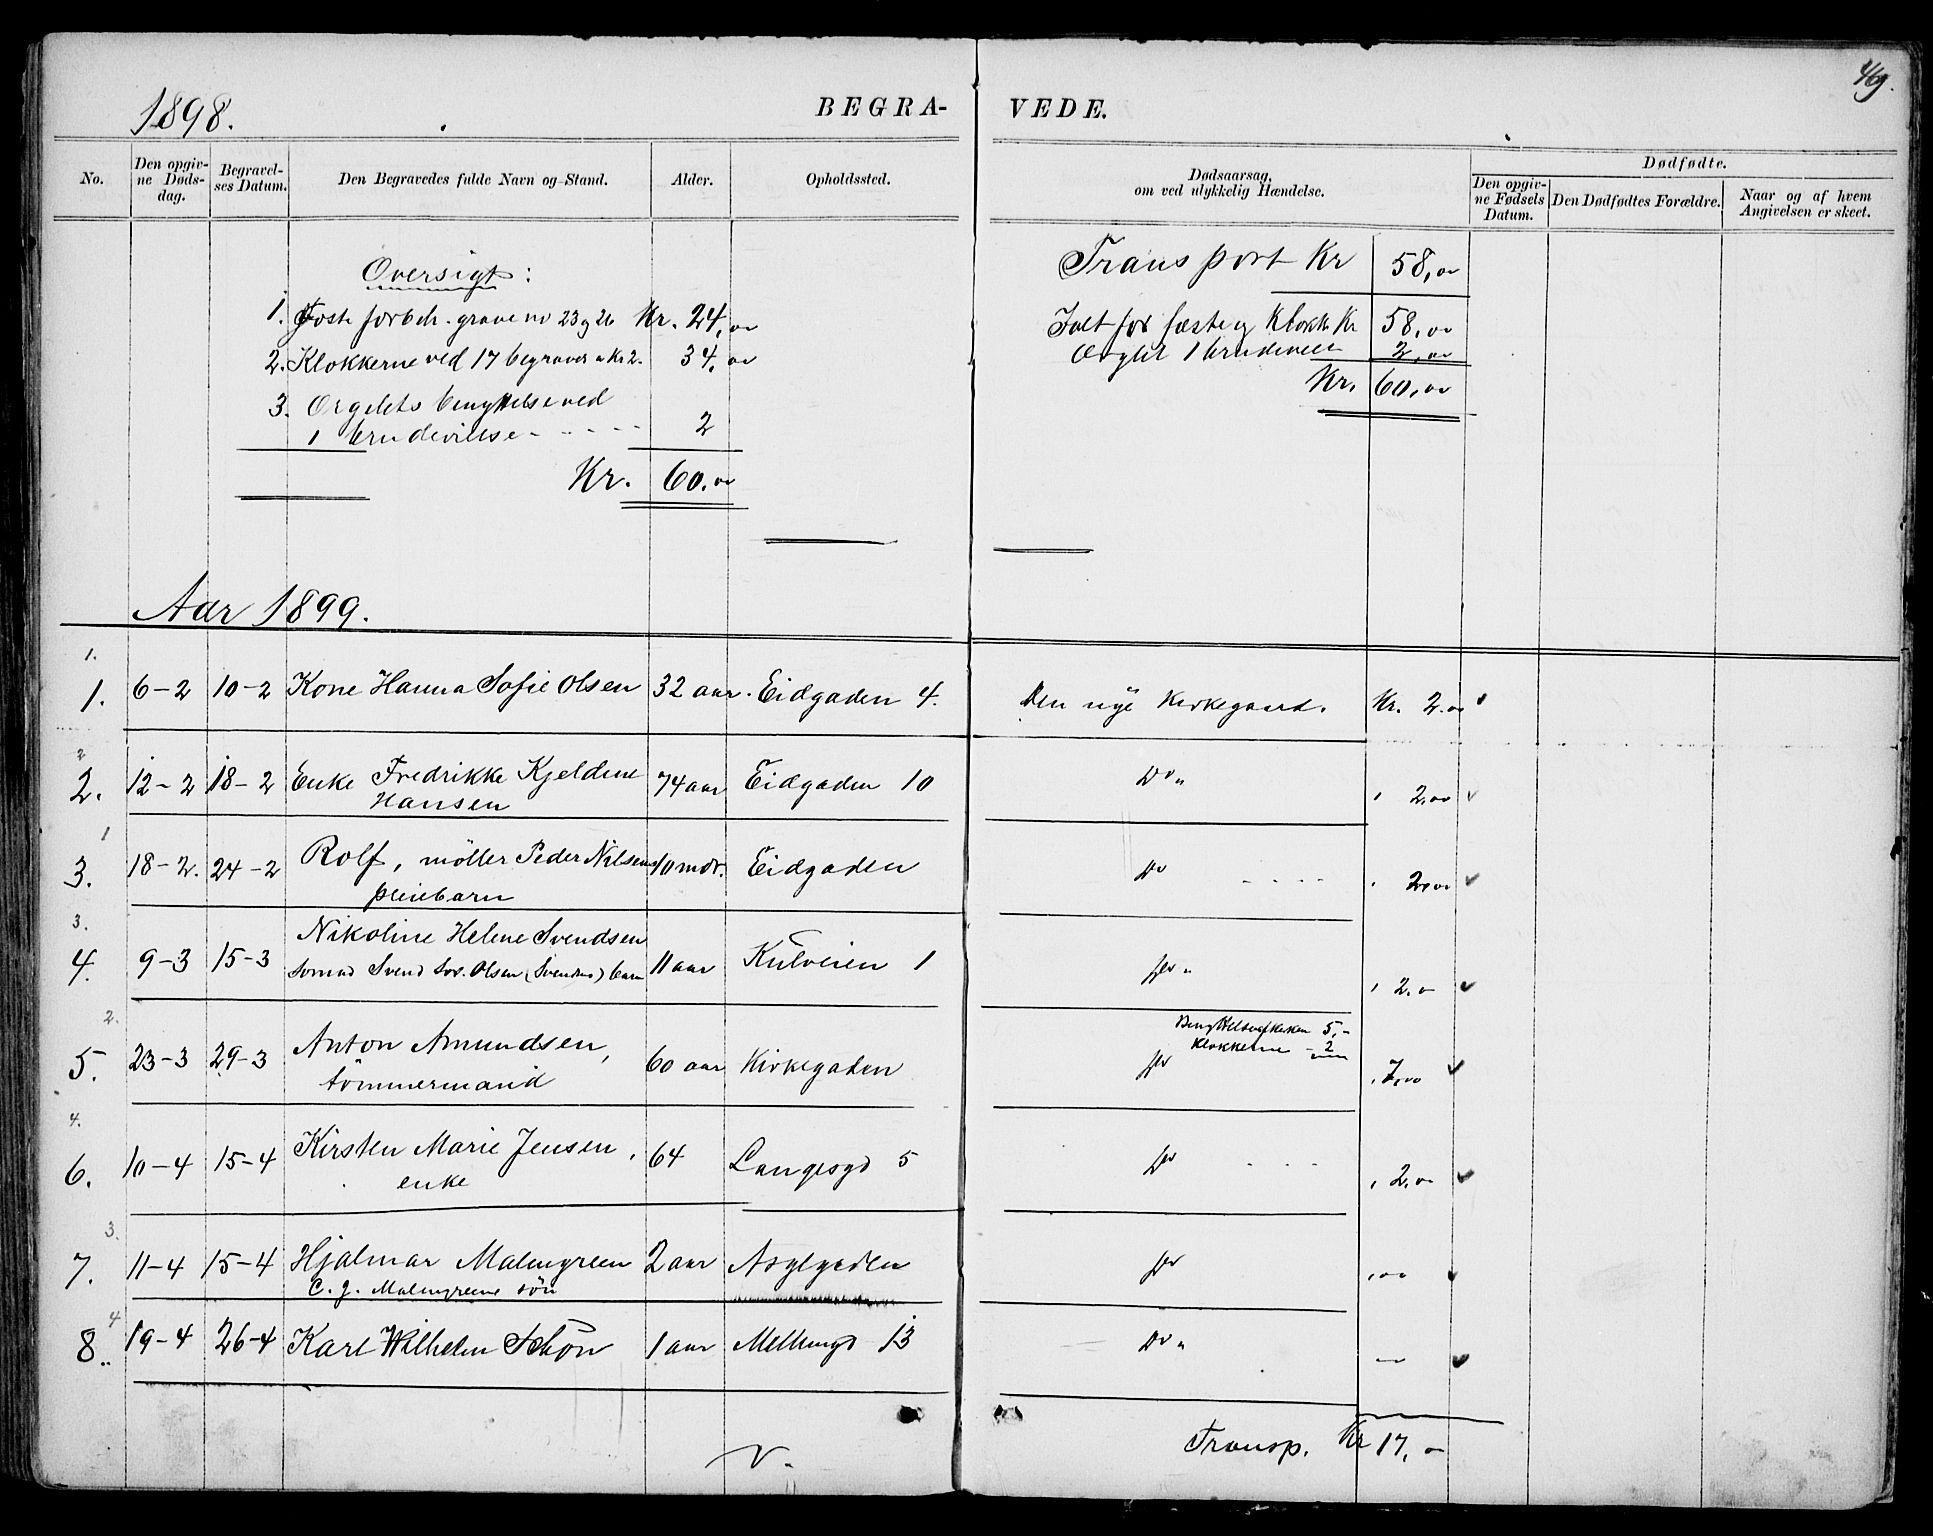 49.
1898.
BEGRA-
VEDE.
No.
Den opgiv-
ne Døds-
dag.
Begravel-
ses Datum.
Den Begravedes fulde Navn og Stand.
Alder.
Opholdssted.
Dødsaarsag,
om ved ulykkelig Hændelse.
Dødfødte.
Den opgiv-
ne Fødsels
Datum.
Den Dødfødtes Forældre.
Naar og af hvem
Angivelsen er skeet.
Oversigt:
1. grave no 23 og 26 Kr. 24,00
2. Klokkerne ved 17 begraver a Kr 2. 34,00
3. Orgelets benyttelse ved
1 brudevielse - - - - - 2
Kr. 60.00
Transport Kr 58,00
Ialt for fæste og Klokke Kr 58,00
Orglet 1 brudeviels 2,00
Kr. 60,00
Aar 1899.
1.
1. 6-2 10-2 Kone Hanna Sofie Olsen 32 aar. Eidgaden 4. Den nye Kirkegaard. Kr. 2.00
2
2. 12-2 18-2 Enke Fredrikke Kjeldine 74 aar Eidgaden 10 Do " 2,00
Hansen
1
3. 18-2. 24-2 Rolf, möller Peder Nilsens 10 mdr. Eidgaden Do - - - - 2,00
pleiebarn
3.
Nikoline Helene Svendsen
4. 9-3 15-3 Svend Olsen (Svendsens) barn 11 aar Kulveien 1 do " 2.0
2.
Klokkerne - 2
5. 23-3 29-3 Anton Amundsen, 60 aar Kirkegaden do 7,00
tömmermand
4.
6. 10-4 15-4 Kirsten Marie Jensen, 64 Langesgd 5 do - - - 2,00
enke
3.
7. 11-4 15-4 Hjalmar Malmgreen 2 aar Asylgaden do
C. J. Malmgreens sön
4
8. 19-4 26-4 Karl Wilhelm Schön 1 aar 13 Do "
Transp. Kr 17,-